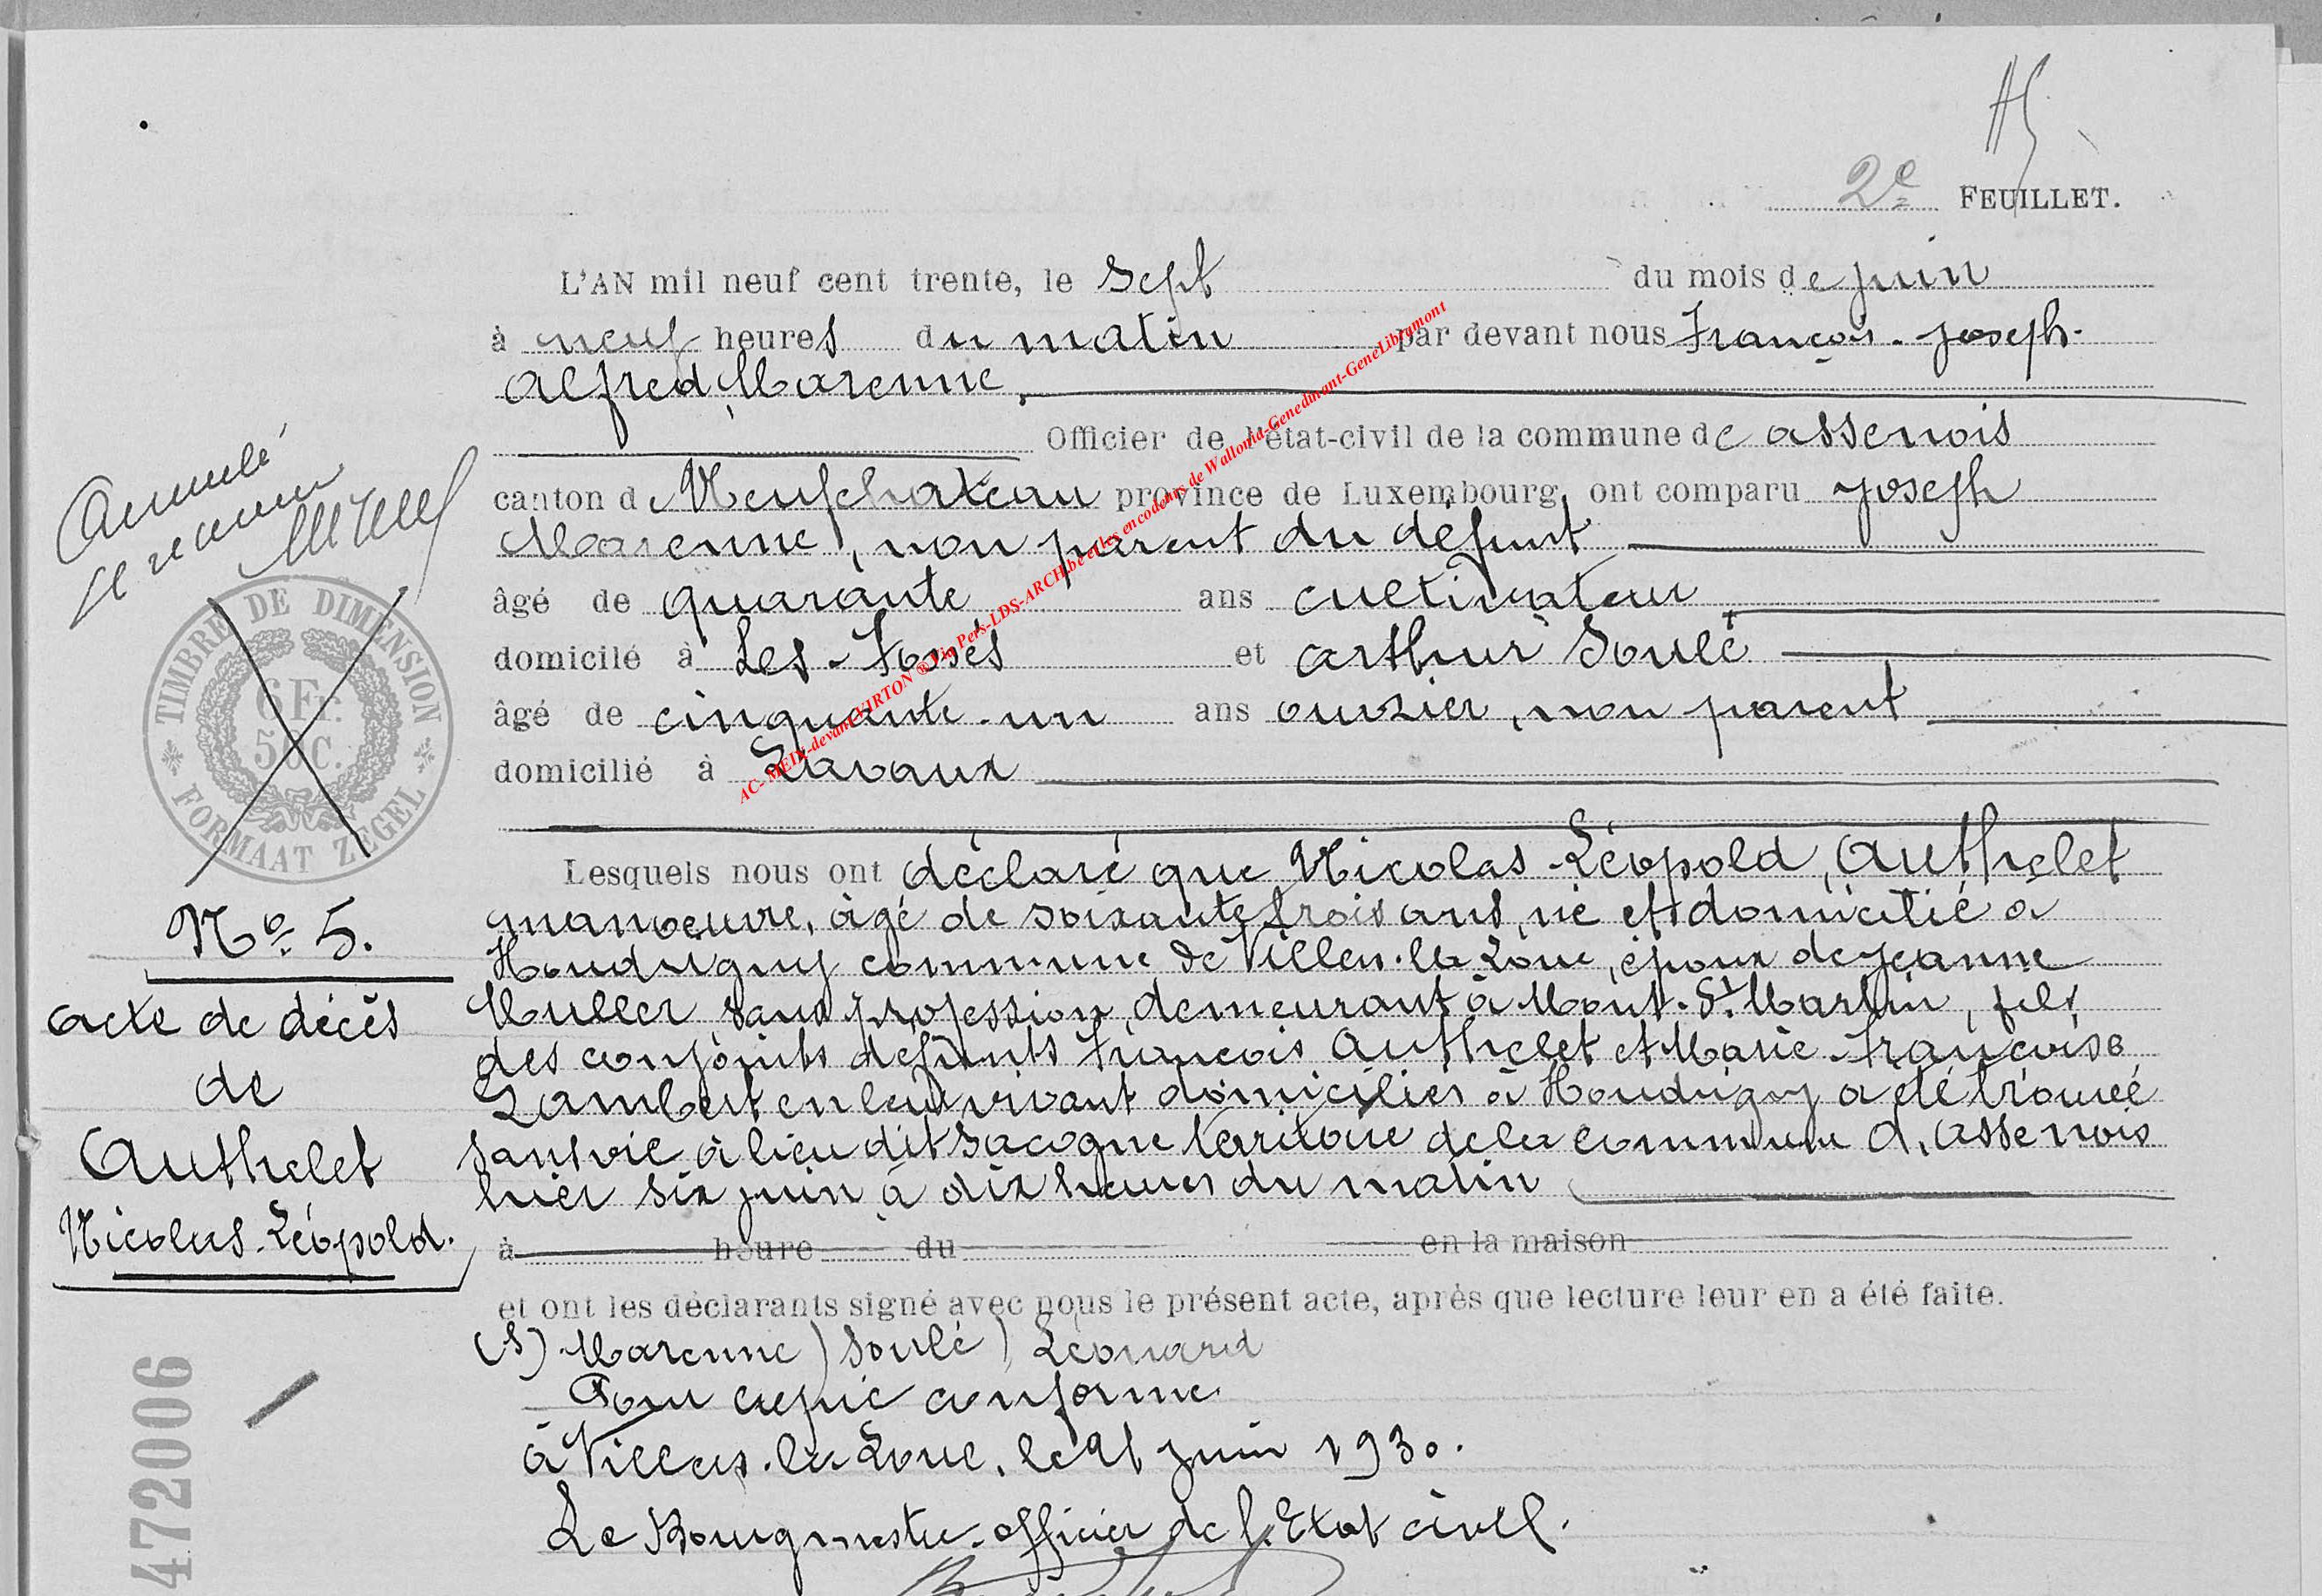 2e FEUILLET.
L'AN mil neuf cent trente, le sept du mois de juin
à neuf heures du matin par devant nous François-Joseph-
Alfred Marenne.
Officier de l'état-civil de la commune de Assenois
canton de Neufchateau province de Luxembourg, ont comparu Joseph
Marenne, non parent du défunt
âgé de quarante ans cultivateur,
domicilé à Les-Fossés et Arthur Soulé
âgé de cinquante-un ans ouvrier, non parent
domicilié à Lavaux
Lesquels nous ont déclaré que Nicolas-Léopold, Authelet
manoeuvre, âgé de soixante trois ans, né et domicilié à
Houdrigny commune de Villers-la-Loue, époux de Jeanne
Muller sans profession, demeurant à Mont-St Martin, fils
des conjoints défunts François Authelet et Marie-Françoise
Lambert en leur vivant domiciliés à Houdrigny a été trouvé
sans vie à lieu dit Sacogne territoire de la commune d'Assenois
hier six juin à dix heures du matin
à heure du en la maison
et ont les déclarants signé avec nous le présent acte, après que lecture leur en a été faite.
(S) Marenne) Soulé) Léonard
Pour copie conforme
à Villers-la-Loue, le 21 juin 1930.
Le Bourgmestre-officier de l'Etat civil.
Annulé
TIMBRE DE DIMENSION
6 Fr.
50 C.
FORMAAT ZEGEL
No 5.
Acte de décès
de
Authelet
Nicolas-Léopold.
472006